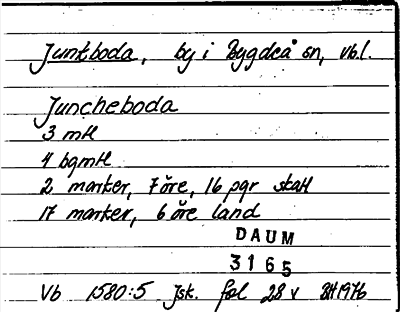 Juntboda, by i Bygdeå sn, Vb.l.
Juncheboda
3 mtl
4 bgmtl
2 marker, 7 öre, 16 pgr skatt
17 marker, 6 öre land
DAUM
3165
Vb 1580:5 Jsk. fol 28 v BH1976